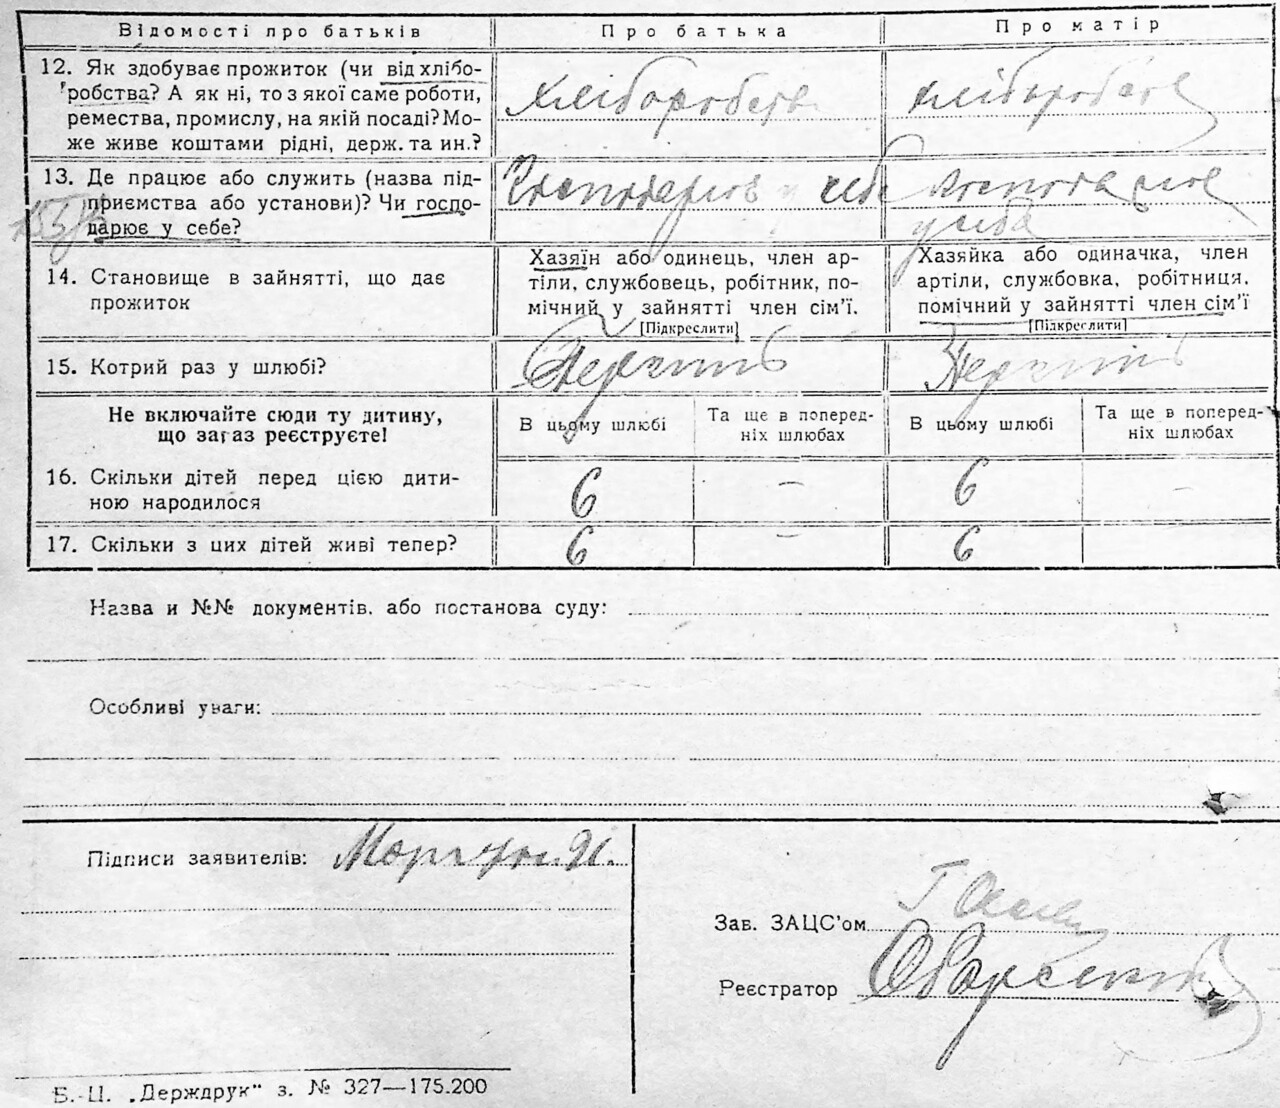 Відомості про батьків Про батька Про матір
12. Як здобуває прожиток (чи від хлібо-
робства? А як ні, то з якої саме роботи,
ремества, промислу, на якій посаді? Мо-
же живе коштами рідні, держ. та ин.?
хліборобств хліборобств
13. Де працює або служить (назва під-
приємства або установи)? Чи госпо-
дарює у себе?
у себе
у себе
14. Становище в зайнятті, що дає
прожиток
Хазяїн або одинець, член ар-
тіли, службовець, робітник, по-
мічний у зайнятті член сім'ї.
[Підкреслити]
Хазяйка або одиначка, член
артіли, службовка, робітниця,
помічний у зайнятті член сім'ї
[Підкреслити]
15. Котрий раз у шлюбі?
Не включайте сюди ту дитину,
що зараз реєструєте!
В цьому шлюбі
Та ще в поперед-
ніх шлюбах
В цьому шлюбі
Та ще в поперед-
ніх шлюбах
16. Скільки дітей перед цією дити-
ною народилося
6 – 6 –
17. Скільки з цих дітей живі тепер?
6 – 6
Назва и №№ документів. або постанова суду:
Особливі уваги:
Підписи заявителів:
Зав. ЗАЦС'ом
Реєстратор
Б.-Ц. „Держдрук" з. № 327—175.200